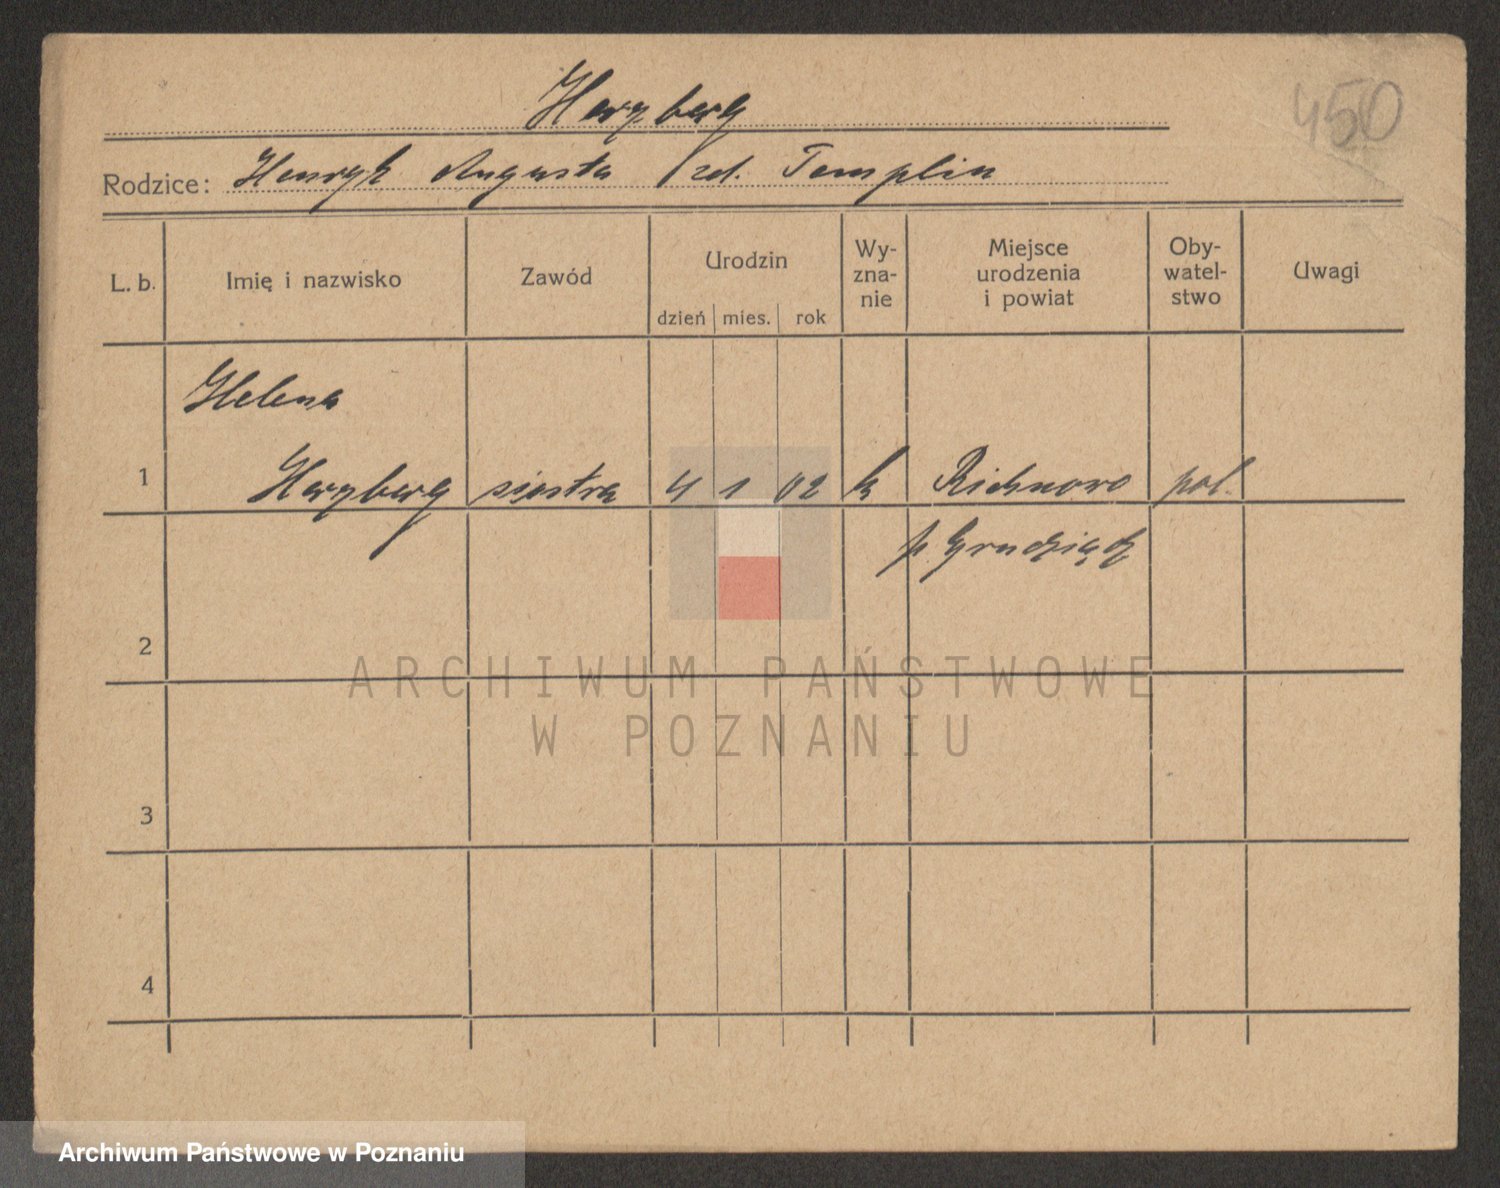 450
Herzberg
Rodzice: Henryk Augusta zd. Templin
L. b. Imię i nazwisko Zawód Urodzin dzień mies. rok Wy-zna-nie Miejsce urodzenia i powiat Oby-watel-stwo Uwagi
Helena
1 Herzberg siostra 4 1 02 k Richnowo pol.
p. Grudziądz
2
ARCHIWUM PAŃSTWOWE
W POZNANIU
3
4
Archiwum Państwowe w Poznaniu